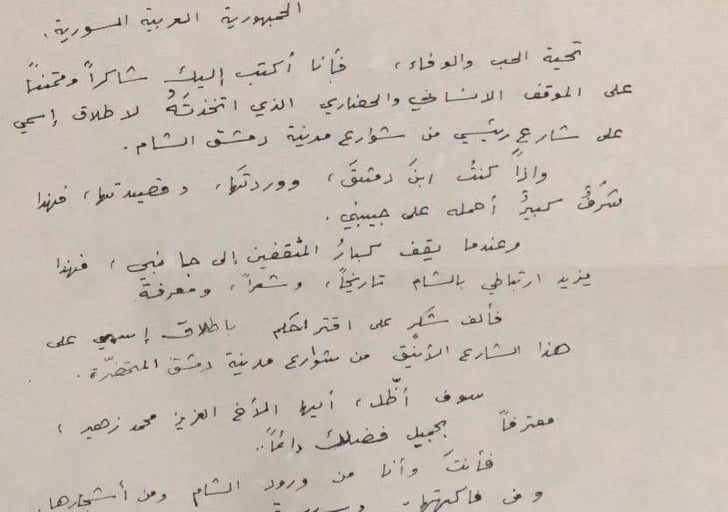 الجمهورية العربية السورية.
تحية الحب والوفاء، فأنا أكتب إليك شاكراً وممتناً
على الموقف الانساني والحضاري الذي اتخذتَهُ لاطلاق إسمي
على شارع رئيسي من شوارع مدينة دمشق الشام.
وإذا كنتُ ابنَ دمشقَ، ووردتَها، وقصيدتها، فهذا
شرفٌ كبيرٌ أحمله على جبيني.
وعندما يقف كبارُ المثقفين إلى جانبي، فهذا
يزيد ارتباطي بالشام تاريخاً، وشعراً، ومعرفةً
فألف شكر على اقتراحكم باطلاق إسمي على
هذا الشارع الأنيق من شوارع مدينة دمشق المتحضّرة.
سوف أظّل، أيها الأخ العزيز محمد زهير،
معترفاً بجميل فضلك دائماً..
فأنتَ وأنا من ورود الشام ومن أشجارها.
ومن فاكهتها.